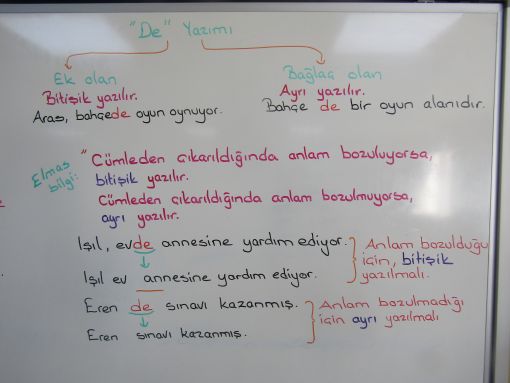 "De" Yazımı
Ek olan
Bitişik yazılır.
Aras, bahçede oyun oynuyor.
Bağlaç olan
Ayrı yazılır.
Bahçe de bir oyun alanıdır.
Elmas bilgi:
" Cümleden çıkarıldığında anlam bozuluyorsa,
bitişik yazılır.
Cümleden çıkarıldığında anlam bozulmuyorsa,
ayrı yazılır.
Işıl, evde annesine yardım ediyor.
Işıl ev annesine yardım ediyor.
Anlam bozulduğu
için, bitişik
yazılmalı.
Eren de sınavı kazanmış.
Eren sınavı kazanmış.
Anlam bozulmadığı
için ayrı yazılmalı